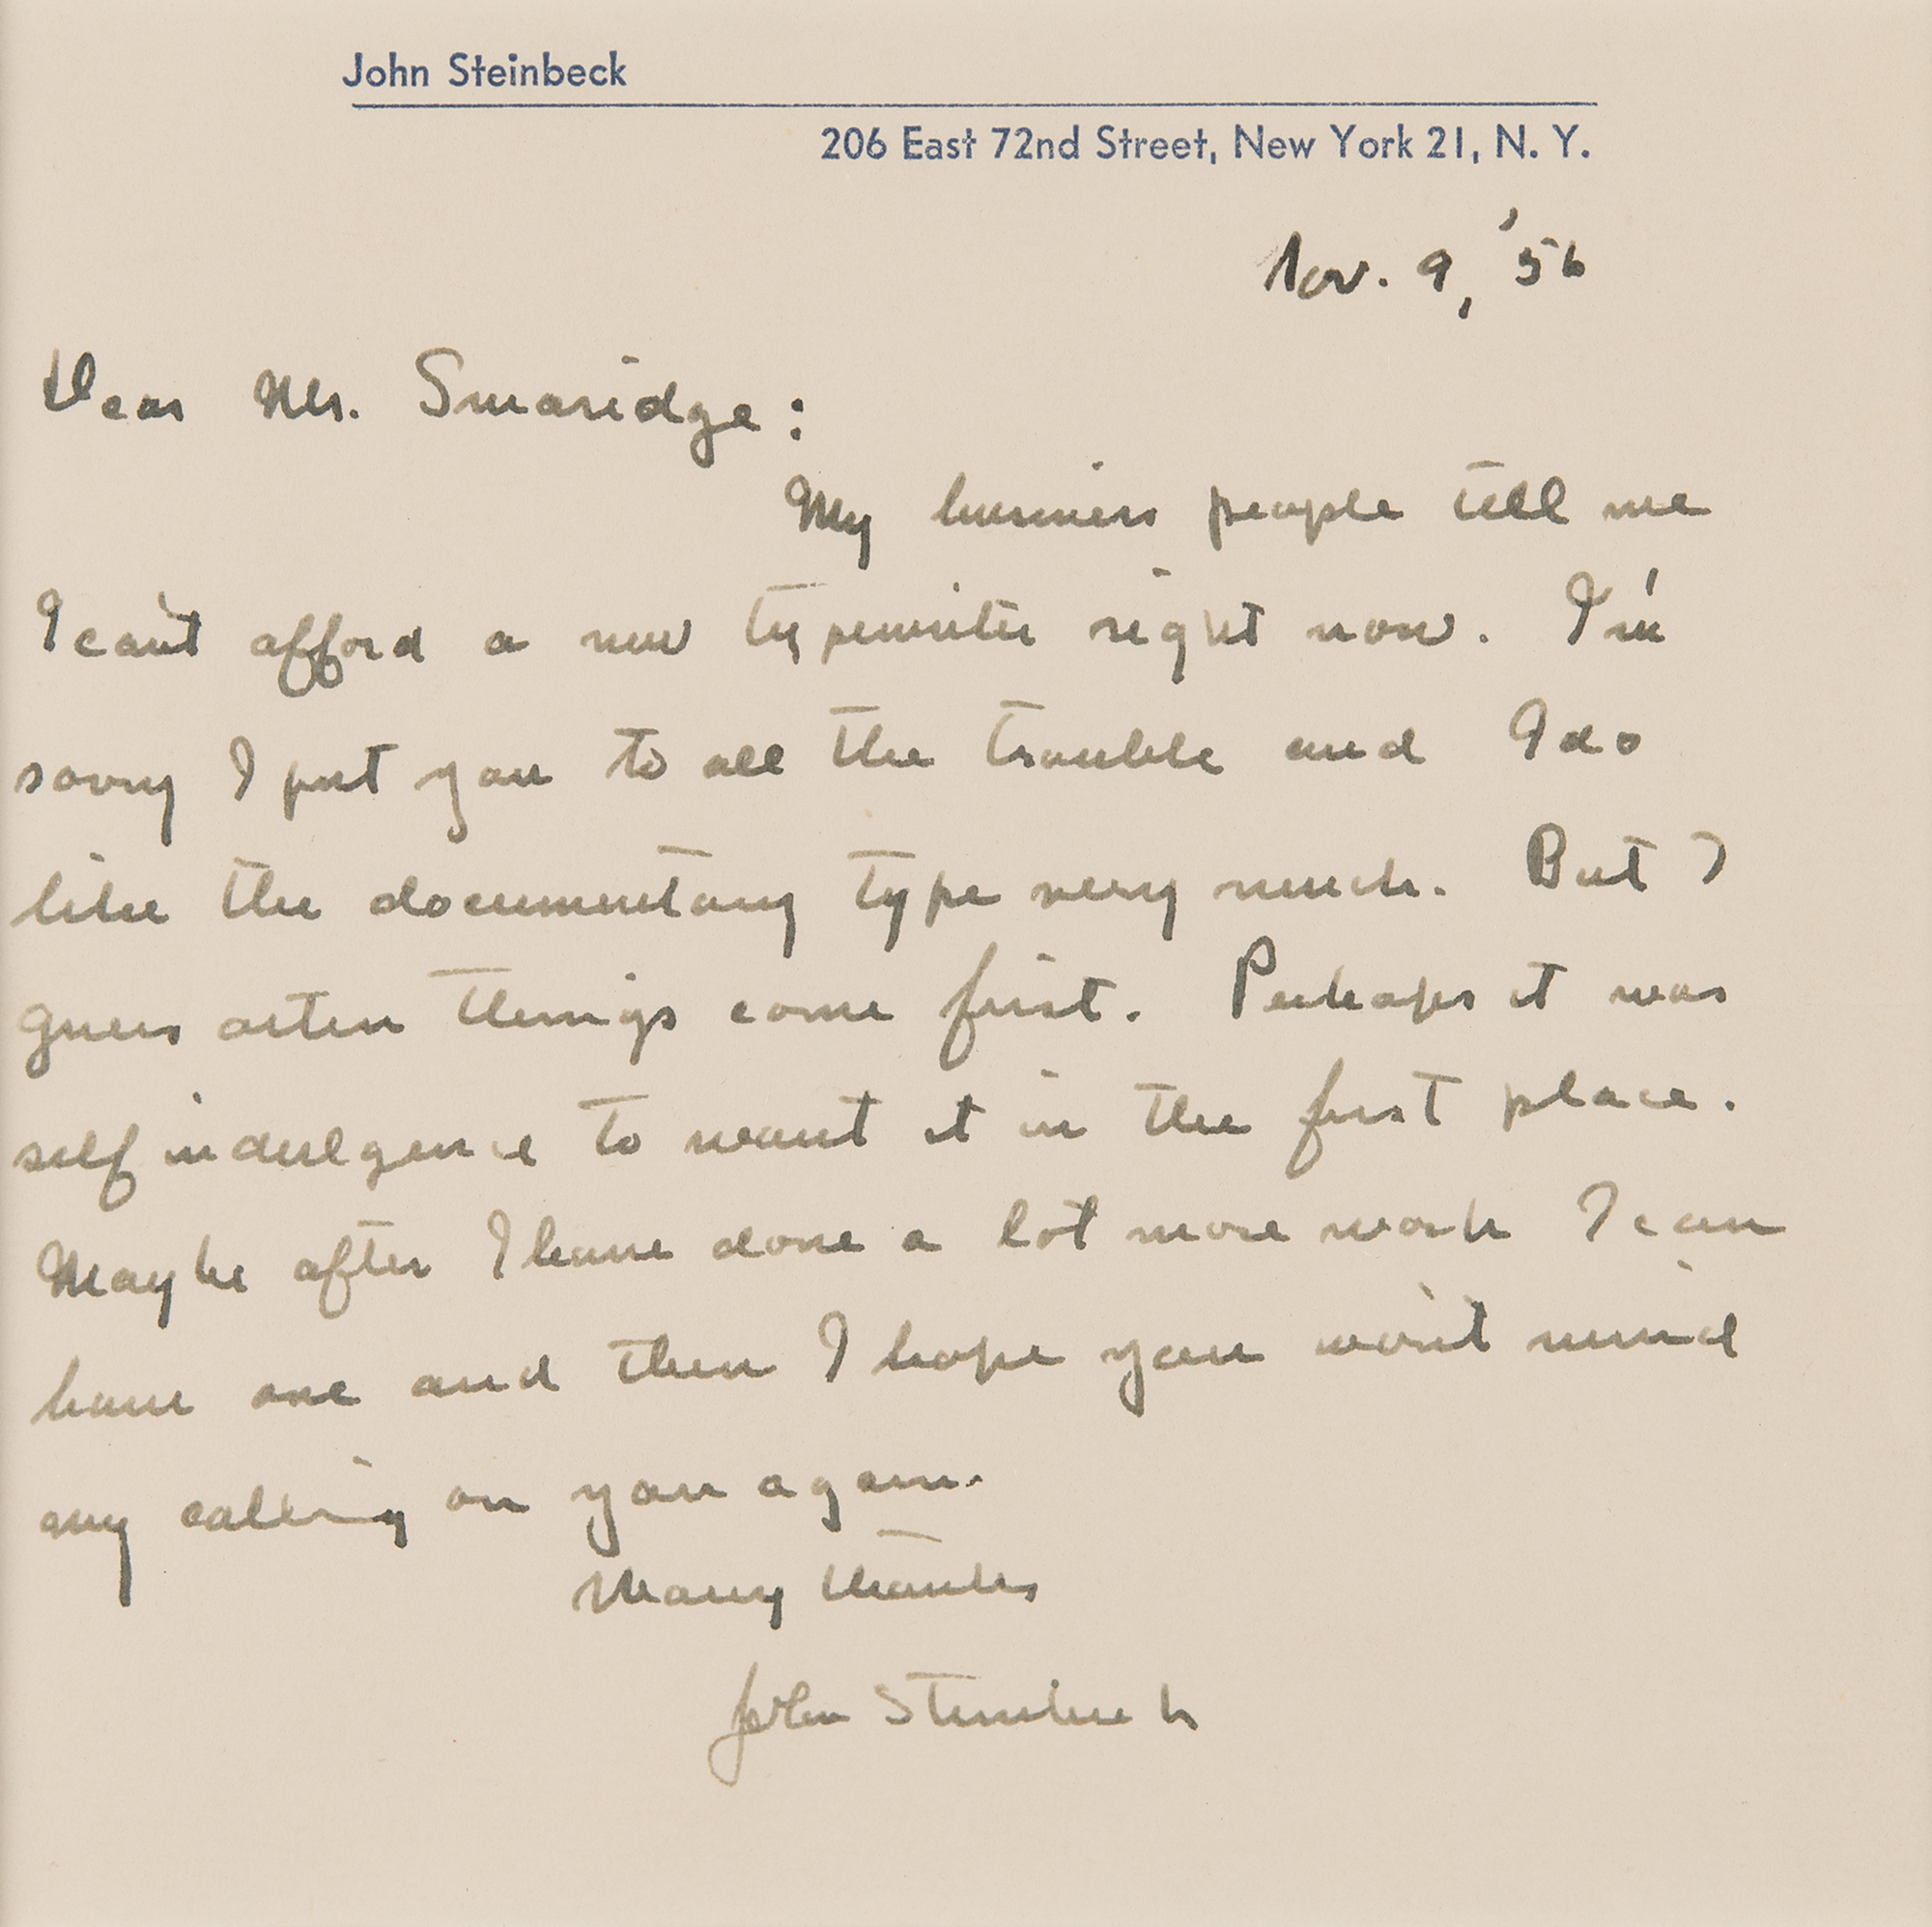 John Steinbeck
206 East 72nd Street, New York 21, N. Y.
Nov. 9, '56
Dear Mr. Smaridge:
My business people tell me
I can't afford a new typewriter right now. I'm
sorry I put you to all the trouble and I do
like the documentary type very much. But I
guess other things come first. Perhaps it was
self indulgence to want it in the first place.
Maybe after I have done a lot more work I can
have one and then I hope you won't mind
my calling on you again.
Many thanks
John Steinbeck